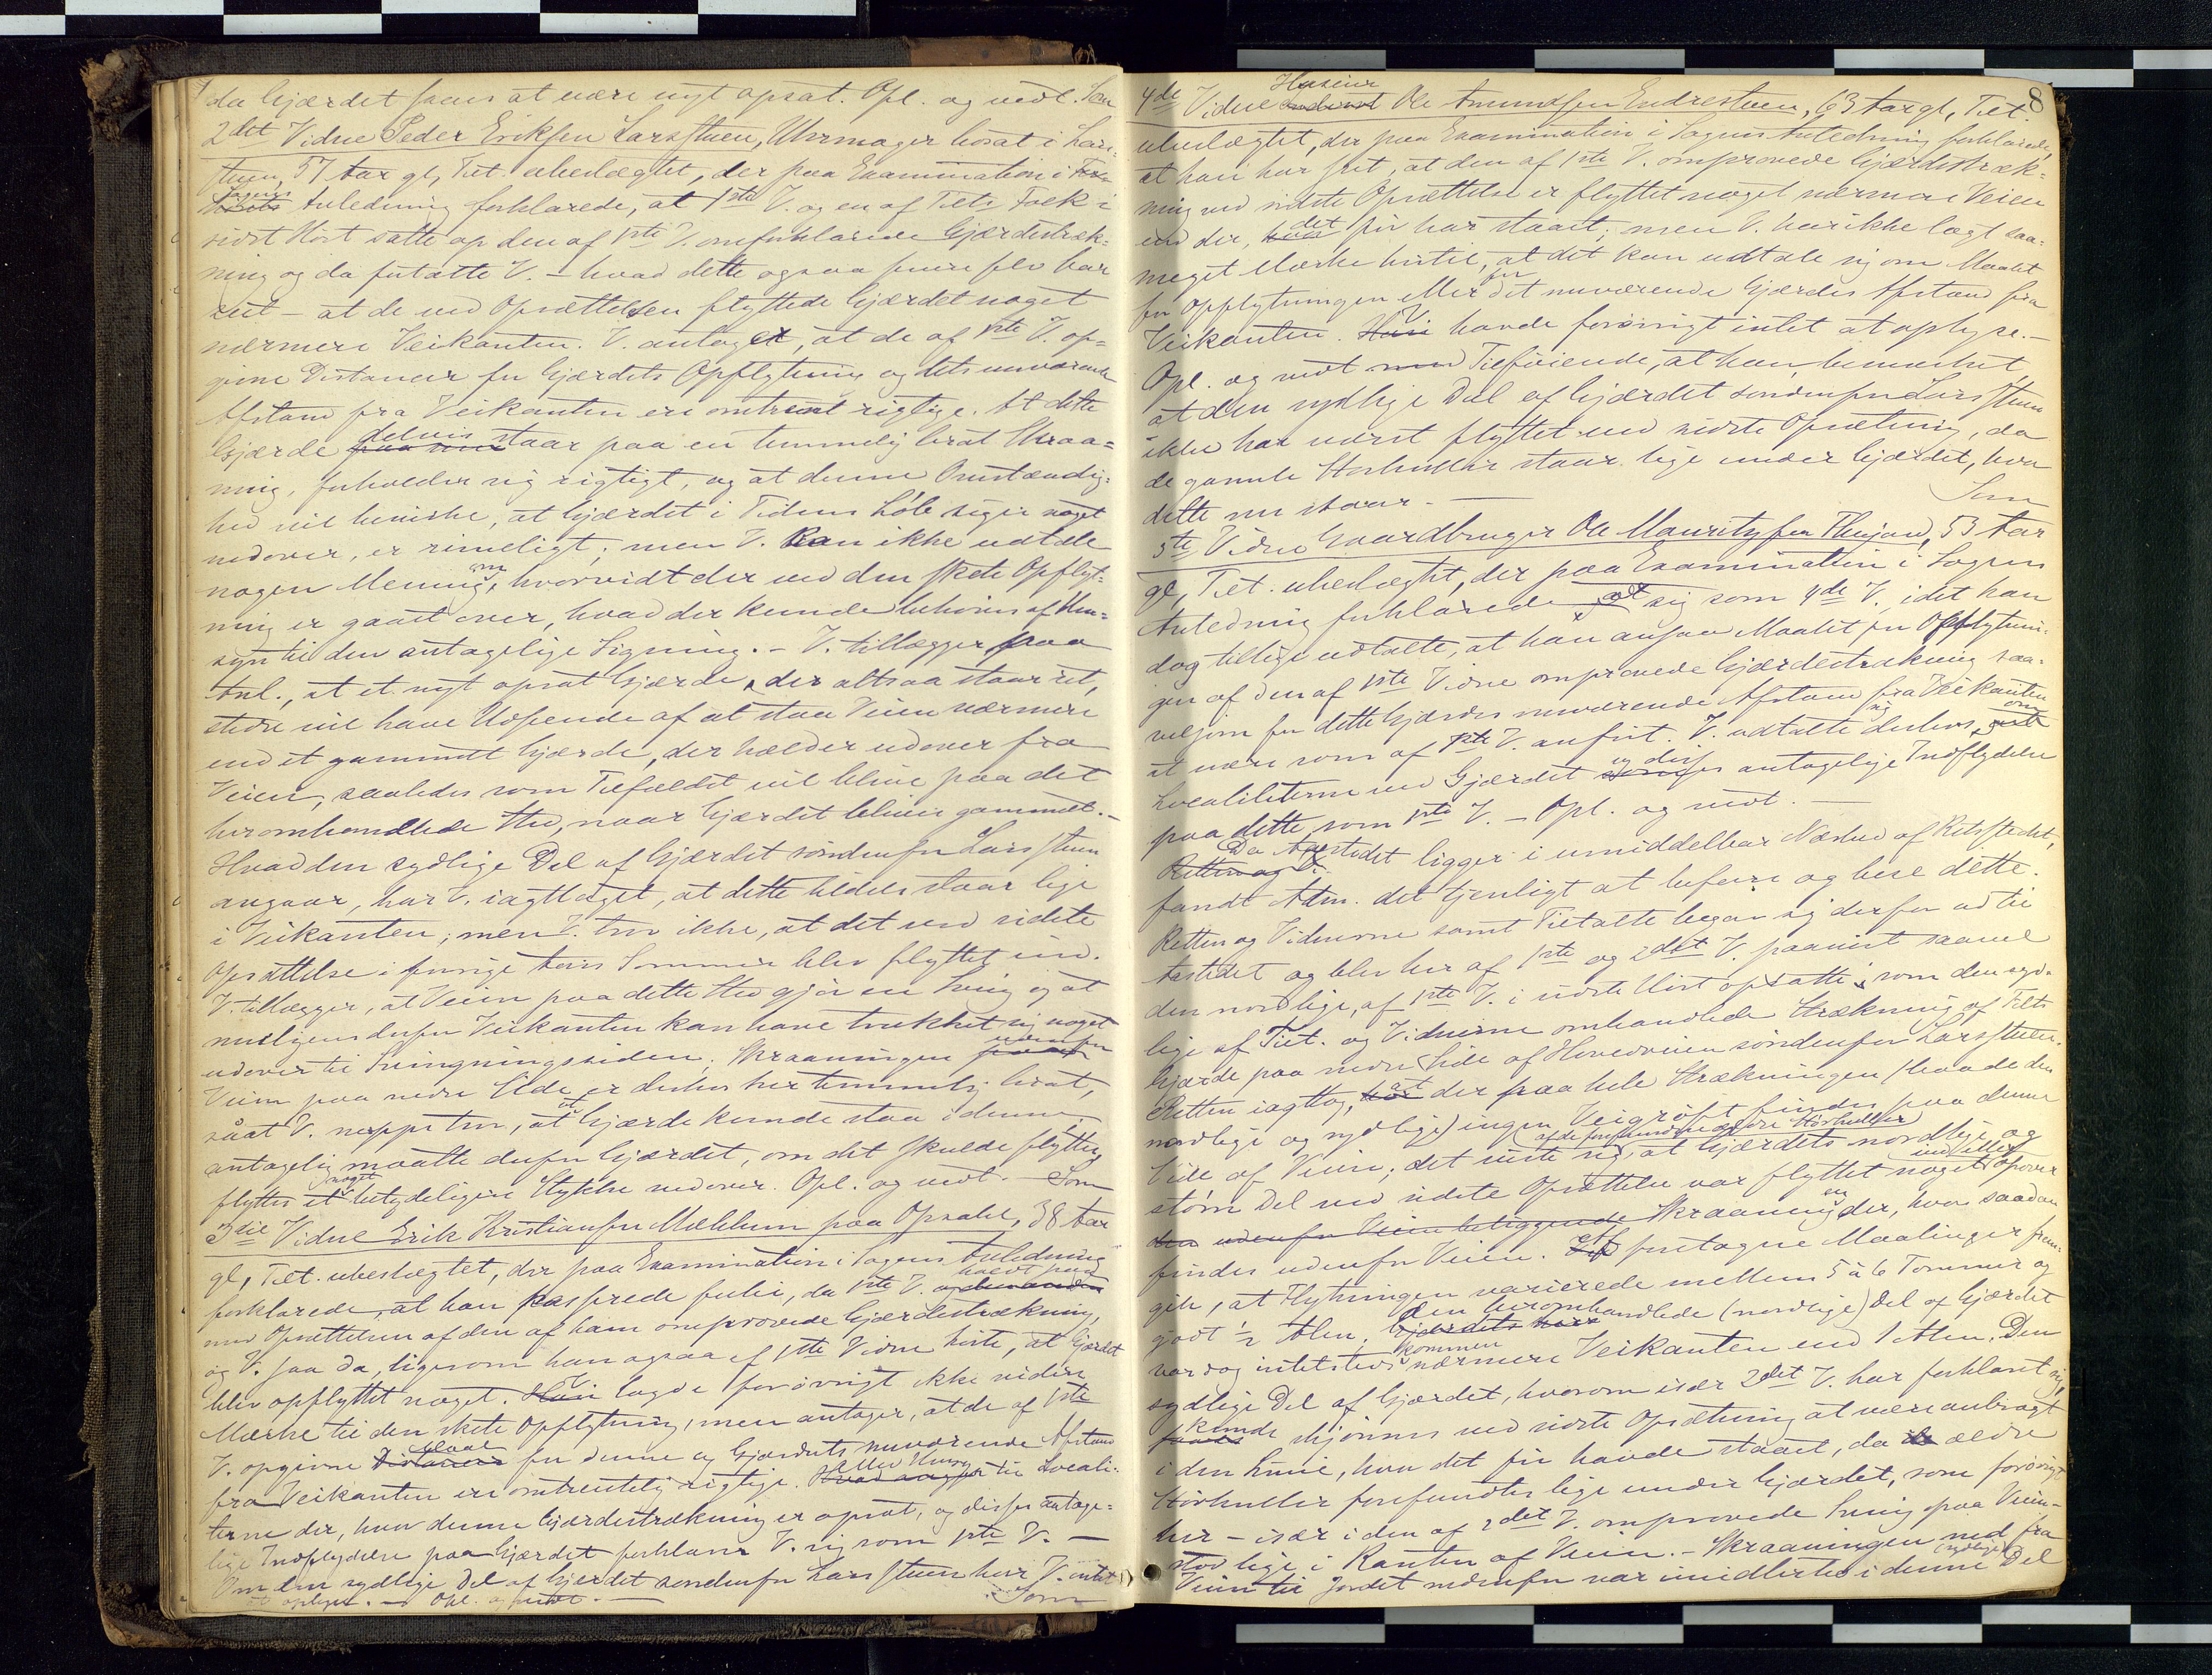 da Gjærdet saaes at være nyt opsat. Opl. og vedt. Som
2det Vidne Peder Eriksen Larsstuen, Uhrmager bosat i Lars-
stuen, 57 Aar gl, Tilt. ubeslægtet, der paa Examination i
Sagens Anledning forklarede, at 1ste V. og en af Tilts Folk i
sidst Høst satte op den af 1ste V. omforklarede Gjærdestræk-
ning og da fortalte V. – hvad dette ogsaa forøvr blev har
seet – at de ved Opsættelsen flyttede Gjærdet noget
nærmere Veikanten. V. antager, at de af 1ste V. op-
givne Distancer for Gjærdets Opflytning og dets nuværende
Afstand fra Veikanten ere omtrent rigtige. At dette
Gjærde delvis staar paa en temmelig brat Skraa-
ning, forholder sig rigtigt, og at denne Omstændig-
hed vil bevirke, at Gjærdet i Tidens Løb siger noget
nedover, er rimeligt; men V. kan ikke udtale
nogen Mening om, hvorvidt der ved den skete Opflyt-
ning er gaaet over, hvad der kunde behøves af Hen-
syn til den antagelige Signing. – V. tillægger paa
Anl., at et nyt opsat Gjærde, der altsaa staar ret,
stedse vil have Udseende af at staa Veien nærmere
end et gammelt Gjærde, der hælder udover fra
Veien, saaledes som Tilfældet vil blive paa det
heromhandlede Sted, naar Gjærdet bliver gammelt. –
Hvad den sydlige Del af Gjærdet søndenfor Larsstuen
angaar, har V. iagttaget, at dette tildels staar lige
i Veikanten; men V. tror ikke, at det ved sidste
Opsættelse i forrige Aars Sommer blev flyttet ind.
V. tillægger, at Veien paa dette Sted gjør en Sving og at
muligens derfor Veikanten kan have trukket sig noget
udover til Svingningssiden. Skraaningen udenfor
Veien paa nedre Side er derhos her temmelig brat,
saat V. neppe tror, at Gjærde kunde staa i denne,
antagelig maatte derfor Gjærdet, om det skulde flyttes,
flyttes et noget betydeligere Stykke nedover. Opl. og vedt. – Som
3die Vidne Erik Kristiansen Mæhlum paa Opsahl, 38 Aar
gl, Tilt. ubeslægtet, der paa Examination i Sagens Anledning
forklarede, at han passerede forbi, da 1ste V. holdt paa
med Opsættelsen af den af ham omprovede Gjærdestrækning,
og V. saa da, ligesom han ogsaa af 1ste Vidne hørte, at Gjærdet
blev opflyttet noget. V. lagde forøvrigt ikke videre
Mærke til den skete Opflytning, men antager, at de af 1ste
V. opgivne Maal for denne og Gjærdets nuværende Afstand
fra Veikanten ere omtrentelig rigtige. Med Hensyn til Locali-
terne der, hvor denne Gjærdestrækning er opsat, og disses antage-
lige Indflydelse paa Gjærdet forklarer V. sig som 1ste V. –
Om den sydlige Del af Gjærdet søndenfor Larsstuen har V. intet
at oplyse. – Opl. og vedt. – Som
8
4de Vidne Huseier Ole Amundsen Endrestuen, 63 Aar gl, Tilt.
ubeslægtet, der paa Examination i Sagens Anledning forklarede,
at han har seet, at den af 1ste V. omprovede Gjærdestræk-
ning ved sidste Opsættelse er flyttet noget nærmere Veien
end der, det før har staaet; men V. har ikke lagt saa-
meget Mærke hertil, at det kan udtale sig om Maalet
for Opflytningen eller for det nuværende Gjærdes Afstand fra
Veikanten. V. havde forøvrigt intet at oplyse. –
Opl. og vedt. Tilføiende, at han bemærket,
at den sydlige Del af Gjærdet søndenfor Larsstuen
ikke har været flyttet ved sidste Opsætning, da
de gamle Størhuller staar lige under Gjærdet, hvor
dette nu staar. – Som
5te Vidne Gaardbruger Ole Mauritzsen Thujord, 53 Aar
gl, Tilt. ubeslægtet, der paa Examination i Sagens
Anledning forklarede sig som 4de V., idet han
dog tillige udtalte, at han ansaa Maalet for Opflytnin-
gen af den af 1ste Vidne omprovede Gjærdestrækning saa-
velsom for dette Gjærdes nuværende Afstand fra Veikanten
at være som af 1ste V. anført. V. udtalte sig derhos om
Localiteterne ved Gjærdet og disses antagelige Indflydelse
paa dette som 1ste V. – Opl. og vedt. –
Da Aastedet ligger i umiddelbar Nærhed af Retsstedet,
fandt Adm. det tjenligt at befare og bese dette.
Retten og Vidnerne samt Tiltalte begav sig derfor ud til
Aastedet og blev her af 1ste og 2det V. paavist saavel
den nordlige, af 1ste V. i sidste Høst opsatte, som den syd-
lige af Tilt. og Vidnerne omhandlede Strækning af Tilts
Gjærde paa nedre Side af Hovedveien søndenfor Larsstuen.
Retten iagttog, at der paa hele Strækningen (baade den
nordlige og sydlige) ingen Veigrøft findes paa denne
Side af Veien; det viste sig af de forhenværende Størhuller, at Gjærdets nordlige og
større Del ved sidste Opsættelse var flyttet noget opover
Skraaningen der, hvor saadan
findes udenfor Veien. foretagne Maalinger frem-
gik, at Flytningen varierede mellem 5 à 6 Tommer og
godt ½ Alen. Den heromhandlede (nordlige) Del af Gjærdet
var dog intetsteds kommen nærmere Veikanten end 1 Alen. Den
sydlige Del af Gjærdet, hvorom især 2det V. har forklaret sig,
kunde skjønnes ved sidste Opsætning at være anbragt
i den Linie, hvor det før havde staaet, da ældre
Størhuller forefandtes lige under Gjærdet, som forøvrigt
her – især i den af 2det V. omprovede Sving paa Veien –
stod lige i Kanten af Veien. – Skraaningen ned fra
Veien til Jordet nedenfor var imidlertid i denne (sydlige) Del